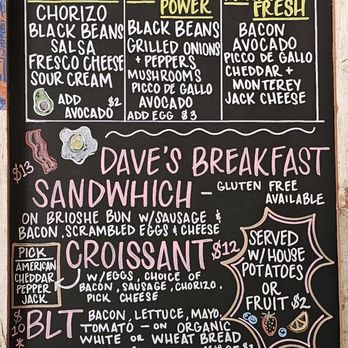 POWER
FRESH
CHORIZO
BLACK BEANS
SALSA
FRESCO CHEESE
SOUR CREAM
ADD $2
AVOCADO
BLACK BEANS
GRILLED ONIONS
+ PEPPERS
MUSHROOMS
PICCO DE GALLO
AVOCADO
ADD EGG $3
BACON
AVOCADO
PICCO DE GALLO
CHEDDAR +
MONTEREY
JACK CHEESE
$13
DAVE'S BREAKFAST
SANDWHICH - GLUTEN FREE
AVAILABLE
ON BRIOSHE BUN W/SAUSAGE &
BACON, SCRAMBLED EGGS & CHEESE
PICK
AMERICAN
CHEDDAR
PEPPER
JACK
CROISSANT $12
W/EGGS, CHOICE OF
BACON, SAUSAGE, CHORIZO,
PICK CHEESE
SERVED
W/HOUSE
POTATOES
OR
FRUIT $2
$10*
BLT BACON, LETTUCE, MAYO,
TOMATO - ON ORGANIC
WHITE OR WHEAT BREAD